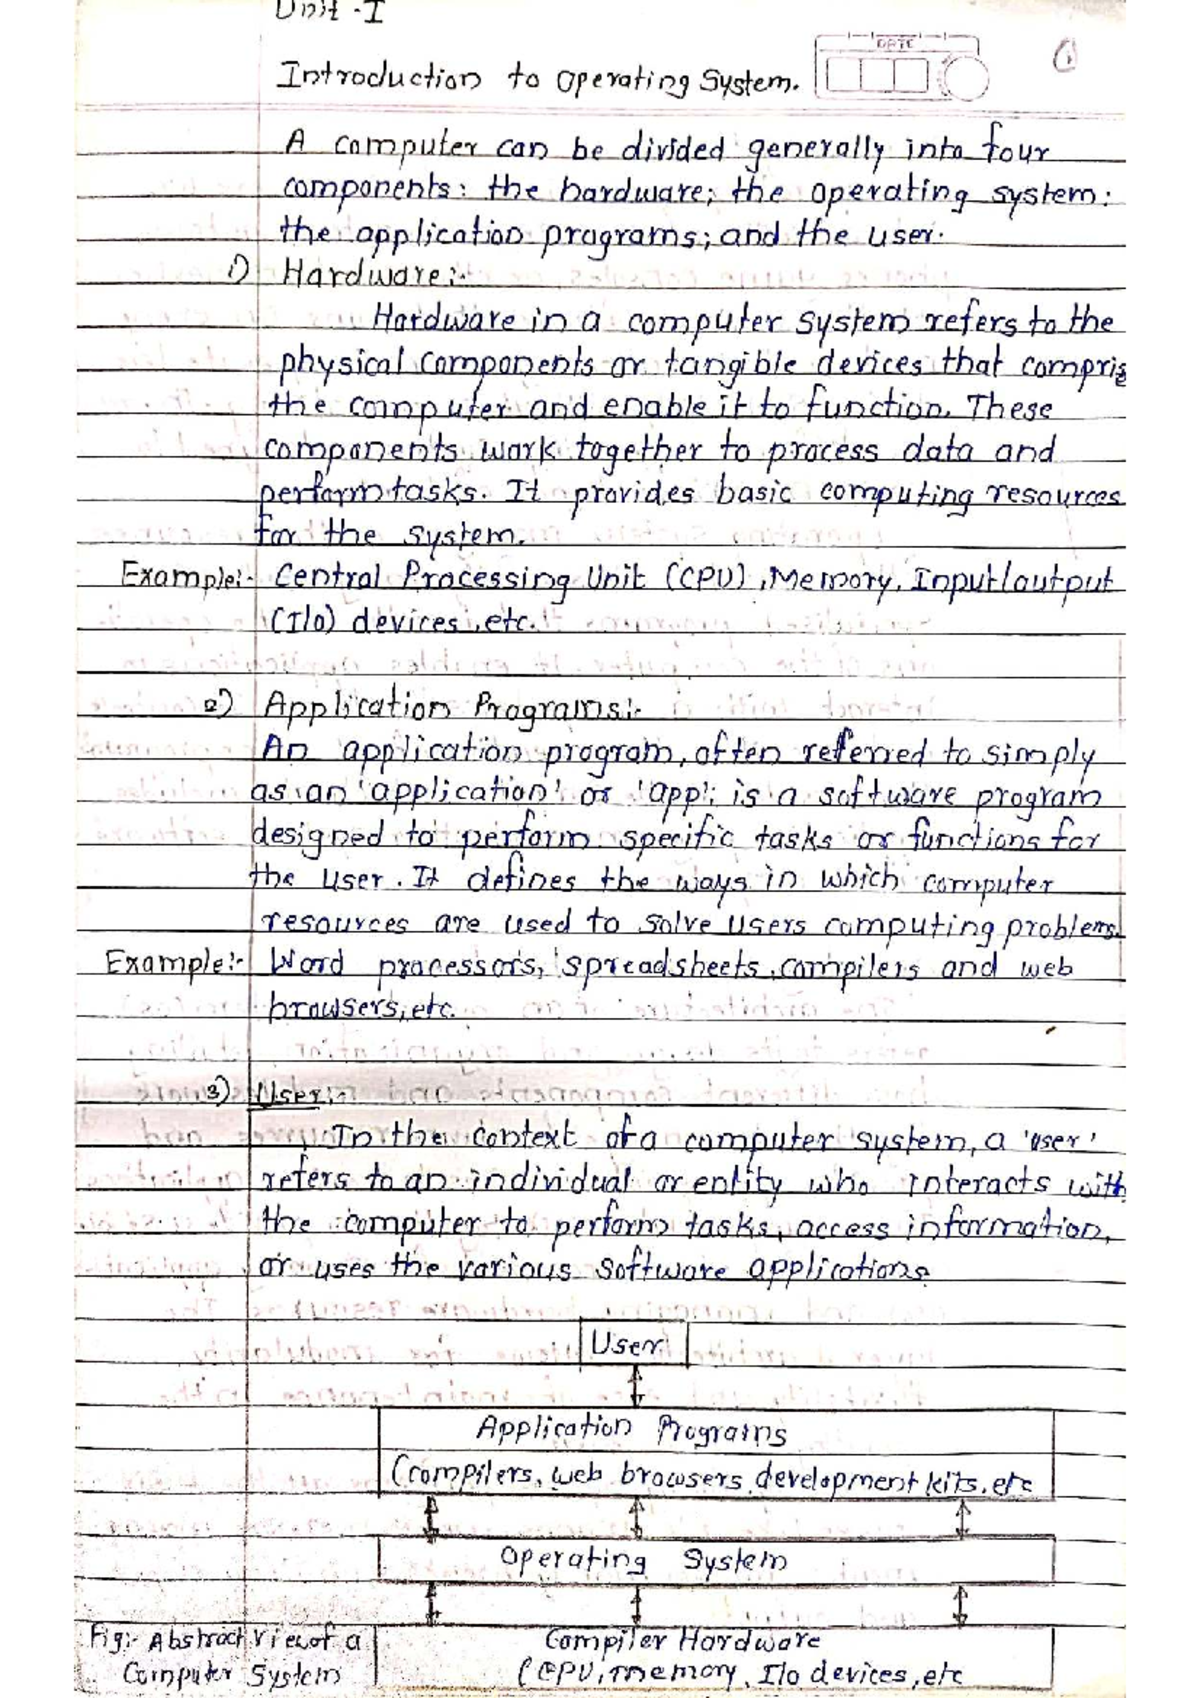 Unit - I
DATE
Introduction to Operating System.
A computer can be divided generally into four
components: the hardware; the operating system:
the application programs; and the user.
1) Hardware:-
Hardware in a computer system refers to the
physical components or tangible devices that compris
the computer and enable it to function. These
components work together to process data and
perform tasks. It provides basic computing resources
for the system.
Example:- Central Processing Unit (CPU), Memory, Input/output
(I/O) devices, etc.
2) Application Programs:-
An application program, often referred to simply
as an 'application' or 'app'; is a software program
designed to perform specific tasks or functions for
the user. It defines the ways in which computer
resources are used to solve users computing problems.
Example:- Word processors, spreadsheets, compilers and web
browsers, etc.
3) User:-
In the context of a computer system, a 'user'
refers to an individual or entity who interacts with
the computer to perform tasks, access information,
or uses the various software applications
User
Application Programs
(compilers, web browsers, development kits, etc
Operating System
Compiler Hardware
(CPU, memory, I/O devices, etc
Fig:- Abstract View of a
Computer System